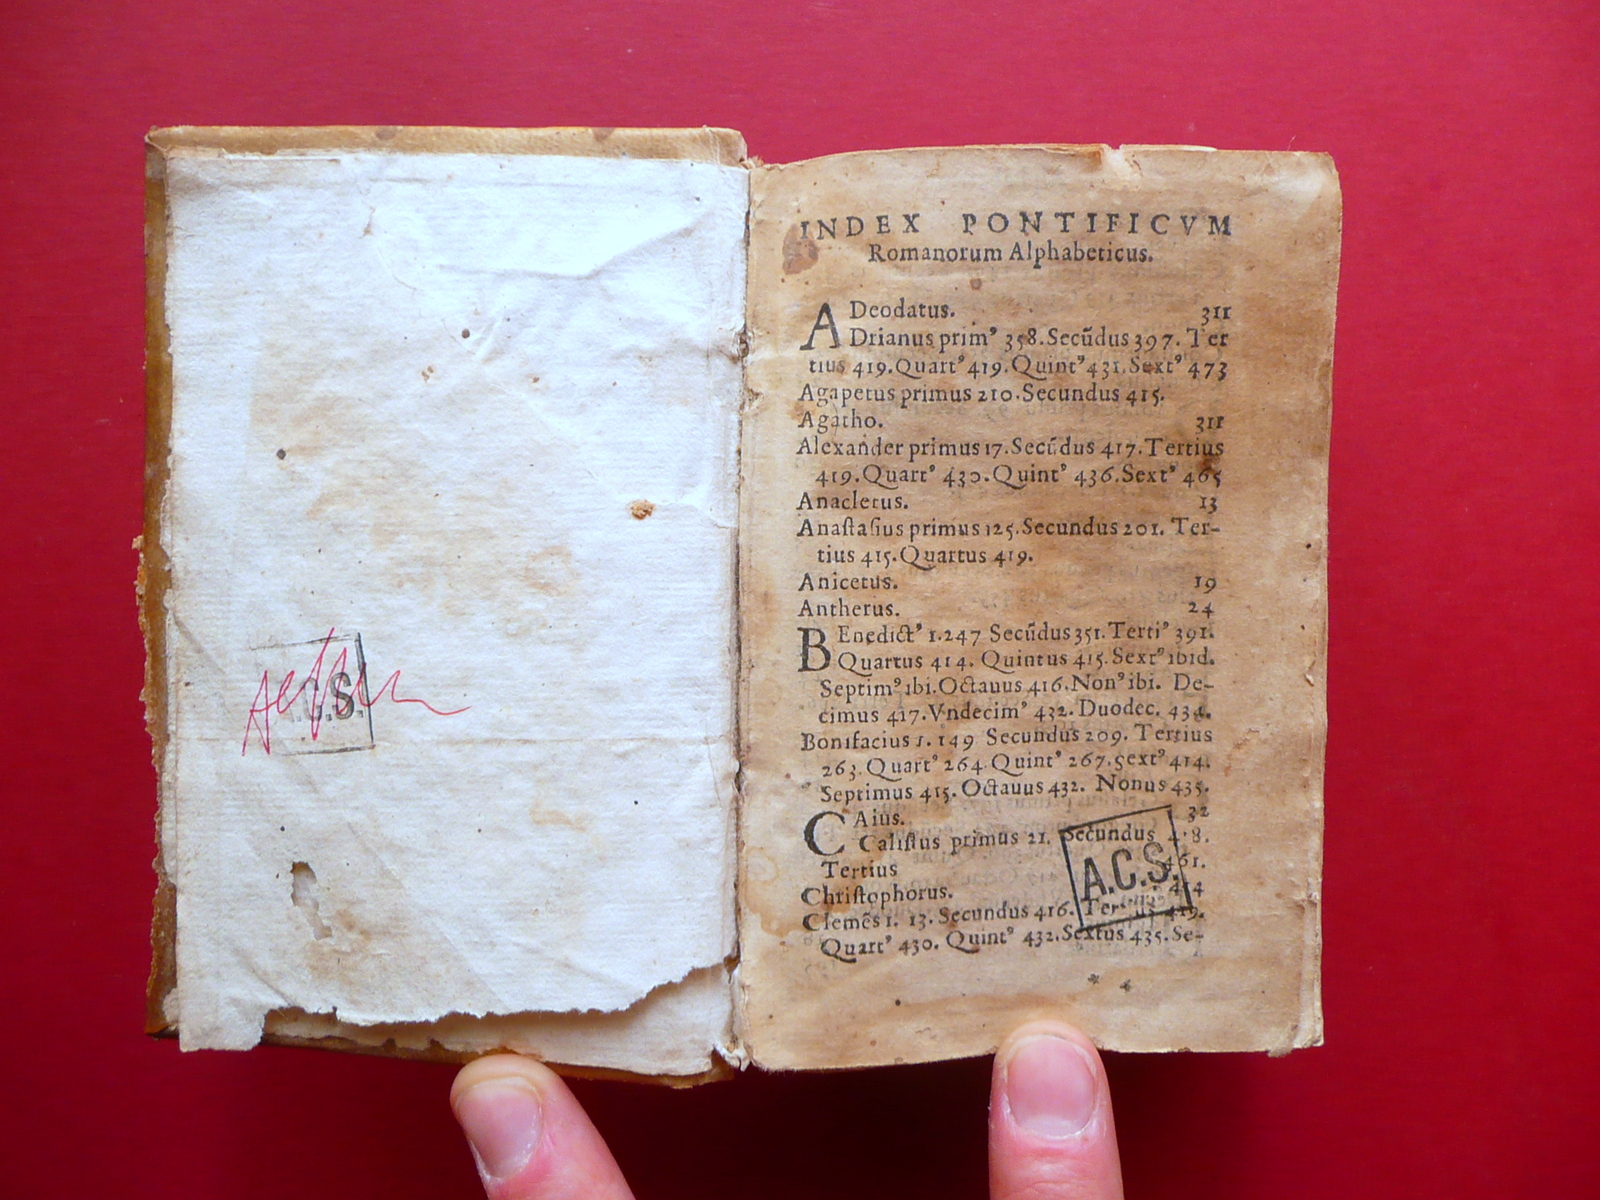 A.C.S.
INDEX PONTIFICVM
Romanorum Alphabeticus.
ADeodatus. 311
ADrianus prim⁹ 358. Secũdus 397. Ter
tius 419. Quart⁹ 419. Quint⁹ 431. Sext⁹ 473
Agapetus primus 210. Secundus 415.
Agatho. 311
Alexander primus 17. Secũdus 417. Tertius
419. Quart⁹ 430. Quint⁹ 436. Sext⁹ 465
Anacletus. 13
Anaſtaſius primus 125. Secundus 201. Ter-
tius 415. Quartus 419.
Anicetus. 19
Antherus. 24
BEnedict⁹ 1. 247 Secũdus 351. Terti⁹ 391.
Quartus 414. Quintus 415. Sext⁹ ibid.
Septim⁹ ibi. Octauus 416. Non⁹ ibi. De-
cimus 417. Vndecim⁹ 432. Duodec. 434.
Bonifacius 1. 149 Secundus 209. Tertius
263. Quart⁹ 264 Quint⁹ 267. sext⁹ 414.
Septimus 415. Octauus 432. Nonus 435.
CAius. 32
Caliſtus primus 21. Secundus 4 8.
Tertius 461.
Chriſtophorus. 414
Clemẽs 1. 13. Secundus 416. Tertius 419.
Quart⁹ 430. Quint⁹ 432. Sextus 435. Se-
* 4
A.C.S.